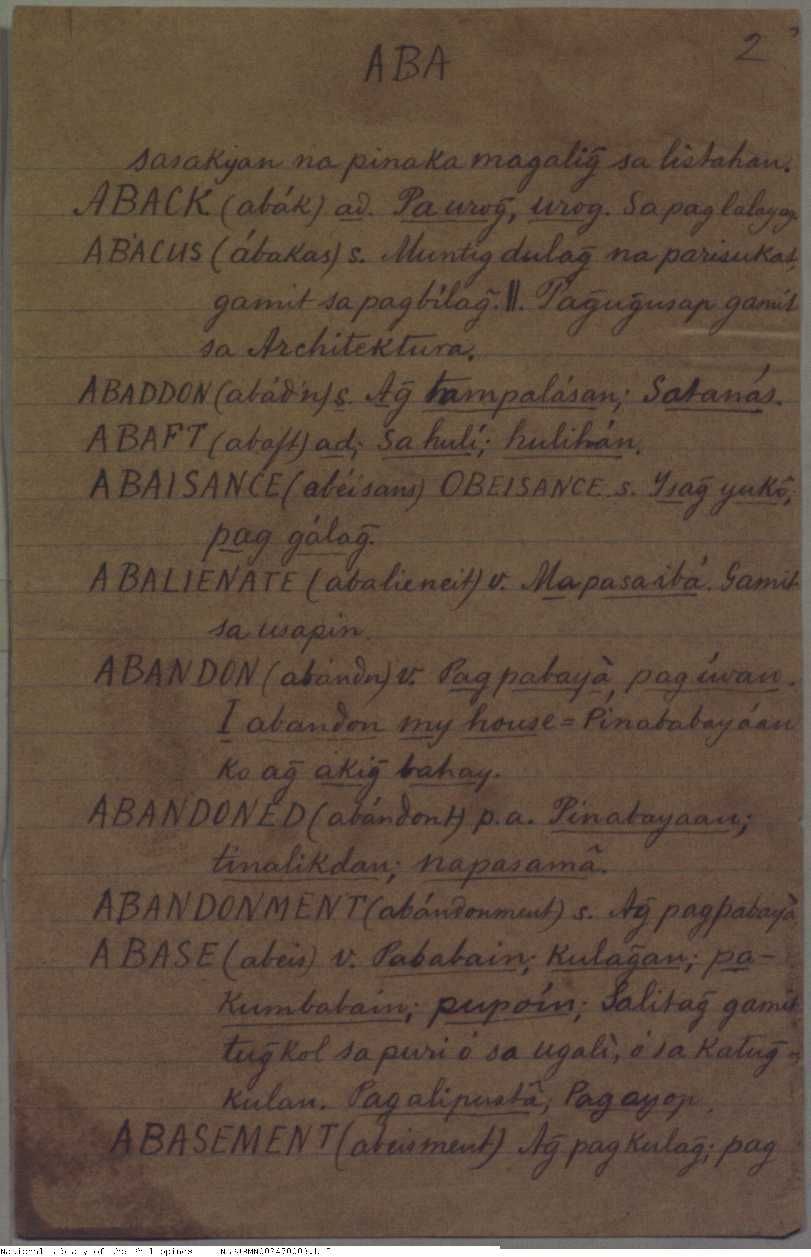 ABA
2
sasakyan na pinaka magalig̃ sa listahan.
ABACK (abák) ad. Pa urog̃, urog. Sa pag lalayag.
ABACUS (ábakas) s. Muntig dulag̃ na parisukat,
gamit sa pagbílag̃. ||. Pag̃ug̃usap gamit
sa Architektura.
ABADDON (abád'n) s. Ag̃ tampalásan; Satanás.
ABAFT (abaft) ad; Sa hulí; hulihán.
ABAISANCE (abéisans) OBEISANCE. s. Ysag̃ yukô;
pag gálag̃.
ABALIENATE (abalieneit) v. Mapasaibá. Gamit
sa usapin.
ABANDON (abándn) v. Pagpabayà, pag íwan.
I abandon my house = Pinababayáan
ko ag̃ akig̃ bahay.
ABANDONED (abándont) p.a. Pinabayaan;
tinalikdan; napasamâ.
ABANDONMENT (abándonment) s. Ag̃ pagpabayà
ABASE (abeis) v. Pababain; kulag̃an; pa-
kumbabain; pupoín; Salitag̃ gamit
tug̃kol sa puri ó sa ugalì, ó sa katug̃-
kulan. Pagalipustâ; Pagayop.
ABASEMENT (abeisment) Ag̃ pag kulag̃; pag
National Library of the Philippines